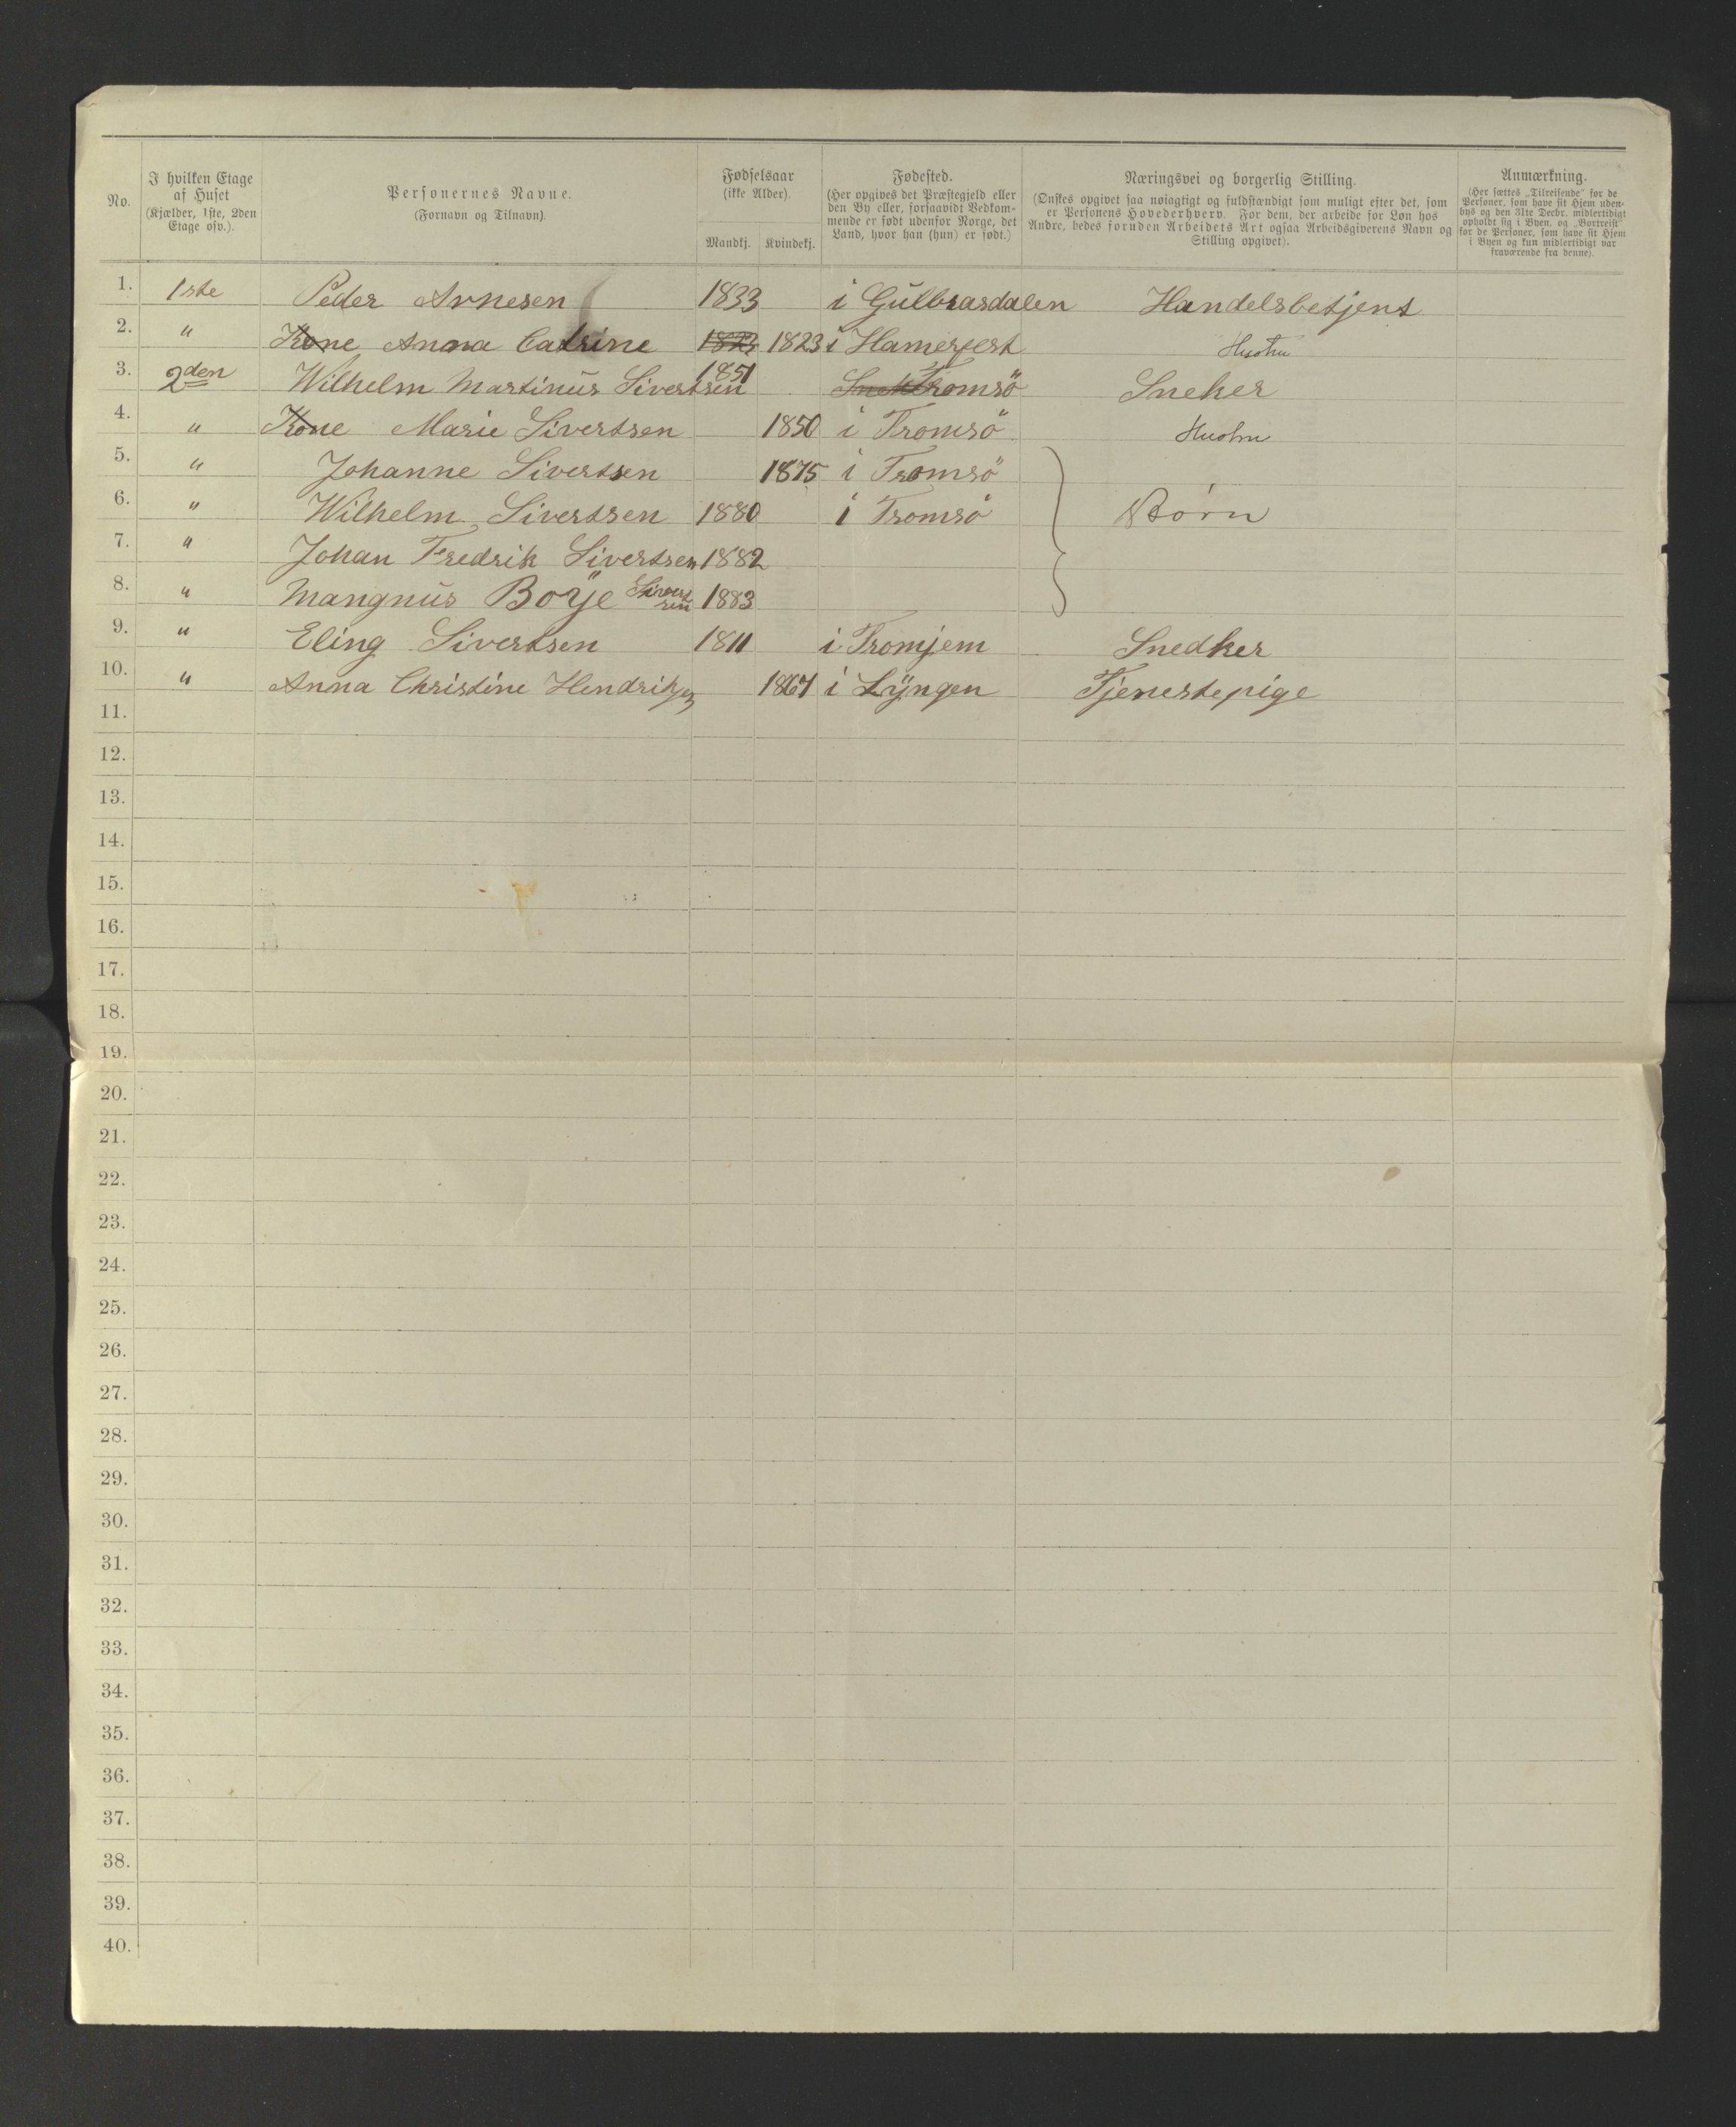 No.
I hvilken Etage af Huset (Kjælder, 1ste, 2den Etage osv.).
Personernes Navne. (Fornavn og Tilnavn).
Fødselsaar (ikke Alder).
Mandkj. Kvindekj.
Fødested. (Her opgives det Præstegjeld eller den By eller, forsaavidt Vedkommende er født udenfor Norge, det Land, hvor han (hun) er født.)
Næringsvei og borgerlig Stilling. (Ønskes opgivet saa nøiagtigt og fuldstændigt som muligt efter det, som er Personens Hovederhverv. For dem, der arbeide for Løn hos Andre, bedes foruden Arbeidets Art ogsaa Arbeidsgiverens Navn og Stilling opgivet).
Anmærkning. (Her sættes „Tilreisende" for de Personer, som have sit Hjem udenbys og den 31te Decbr. midlertidigt opholdt sig i Byen, og „Bortreist" for de Personer, som have sit Hjem i Byen og kun midlertidigt var fraværende fra denne).
1. 1ste Peder Arnesen 1833 i Gulbrasdalen Handelsbetjent
2. " Kone Anna Catrine 1823 1823 i Hamerfest Hustru
3. 2den Wilhelm Martinus Sivertsen 1851 Tromsö Sneker
4. " Kone Marie Sivertsen 1850 i Tromsö Hustru
5. " Johanne Sivertsen 1875 i Tromsö
6. " Wilhelm Sivertsen 1880 i Tromsö Börn
7. " Johan Fredrik Sivertsen 1882
8. " Mangnus Boye Sivertsen 1883
9. " Eling Sivertsen 1811 i Tromjem Snedker
10. " Anna Christine Hendriksen 1867 i Lyngen Tjenestepige
11.
12.
13.
14.
15.
16.
17.
18.
19.
20.
21.
22.
23.
24.
25.
26.
27.
28.
29.
30.
31.
32.
33.
34.
35.
36.
37.
38.
39.
40.